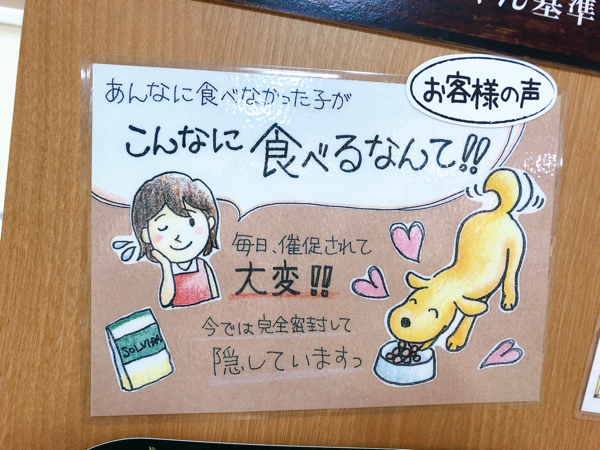 ん基準
お客様の声
あんなに食べなかった子が
こんなに食べるなんて!!
毎日、催促されて
大変!!
今では完全密封して
隠していますっ
SOLVIDA